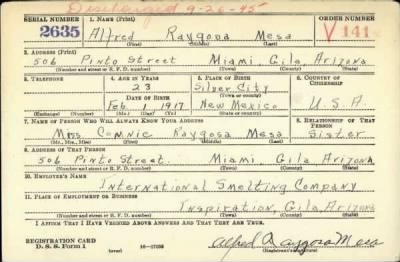 Discharged 9-26-45
SERIAL NUMBER 1. NAME (Print) ORDER NUMBER
2635 Alfred Raygosa Mesa V 141
(First) (Middle) (Last)
2. ADDRESS (Print)
506 Pinto Street Miami, Gila, Arizona
(Number and street or R. F. D. number) (Town) (County) (State)
3. TELEPHONE 4. AGE IN YEARS 5. PLACE OF BIRTH 6. COUNTRY OF CITIZENSHIP
23 Silver City
DATE OF BIRTH (Town or county)
Feb. 1 1917 New Mexico U.S.A.
(Exchange) (Number) (Mo.) (Day) (Yr.) (State or country)
7. NAME OF PERSON WHO WILL ALWAYS KNOW YOUR ADDRESS 8. RELATIONSHIP OF THAT PERSON
Mrs Raygosa Mesa Sister
(Mr., Mrs., Miss) (First) (Middle) (Last)
9. ADDRESS OF THAT PERSON
506 Pinto Street. Miami, Gila Arizona
(Number and street or R. F. D. number) (Town) (County) (State)
10. EMPLOYER'S NAME
International Smelting Company
11. PLACE OF EMPLOYMENT OR BUSINESS
Inspiration, Gila, Arizona
(Number and street or R. F. D. number) (Town) (County) (State)
I AFFIRM THAT I HAVE VERIFIED ABOVE ANSWERS AND THAT THEY ARE TRUE.
REGISTRATION CARD
D. S. S. Form 1 (over) 16-17105 Alfred Raygosa Mesa
(Registrant's signature)